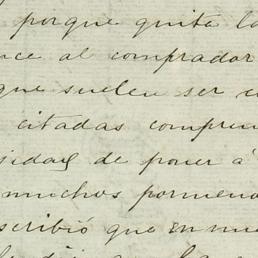 porque quita la
nce al comprador
que suelen ser
citadas compren
sidad de poner á
muchos pormeno
scribió que en mu